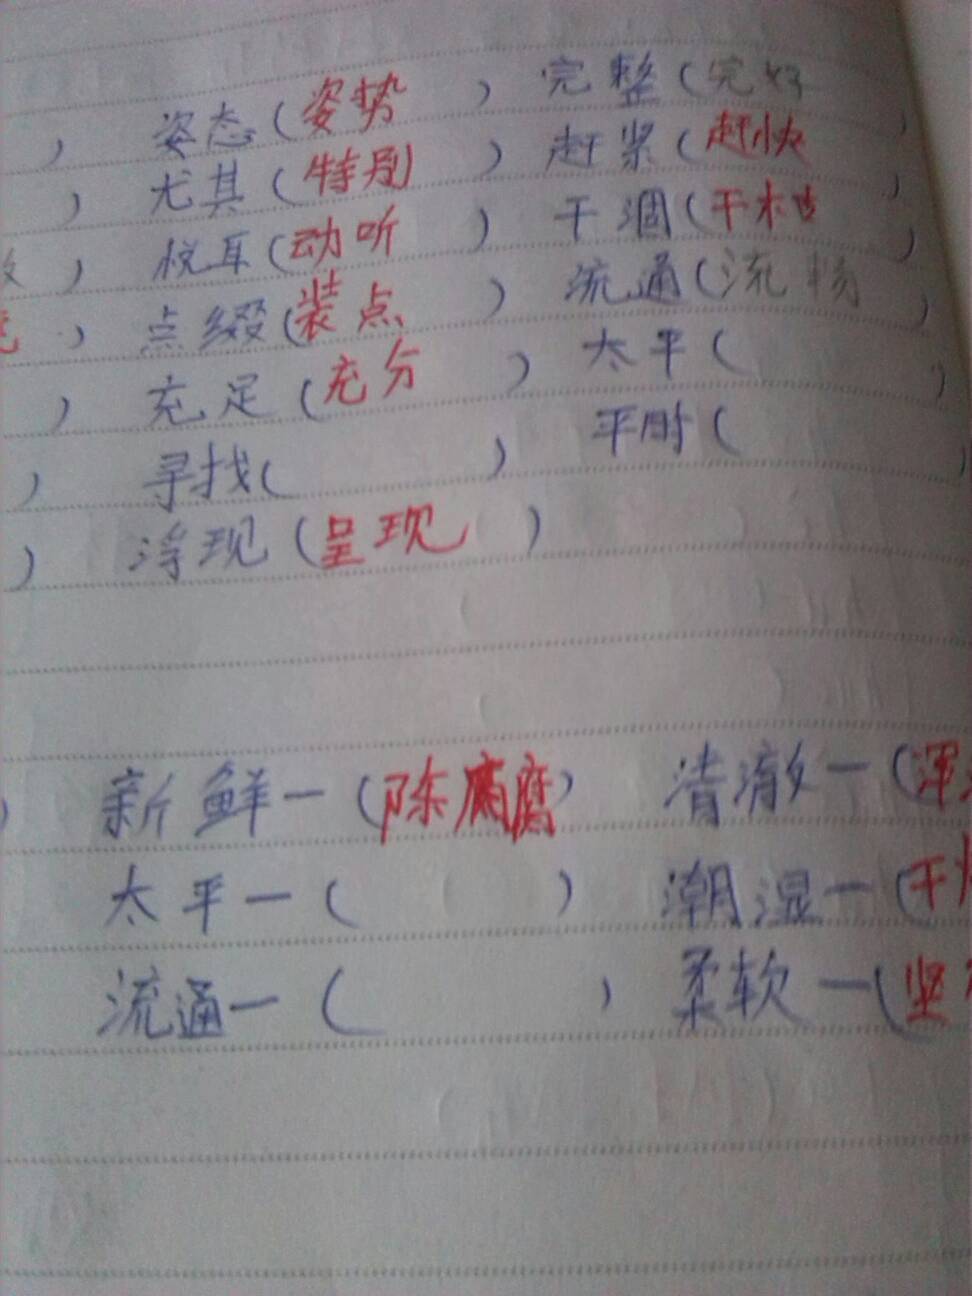 ) 姿态(姿势 ) 完整(完好 )
) 尤其(特别 ) 赶紧(赶快 )
) 悦耳(动听 ) 干涸(干枯 )
) 点缀(装点 ) 流通(流畅 )
) 充足(充分 ) 太平( )
) 寻找( ) 平时( )
) 浮现(呈现 )
) 新鲜一(陈腐) 清澈一(浑
太平一( ) 潮湿一(干
流通一( ) 柔软一(坚